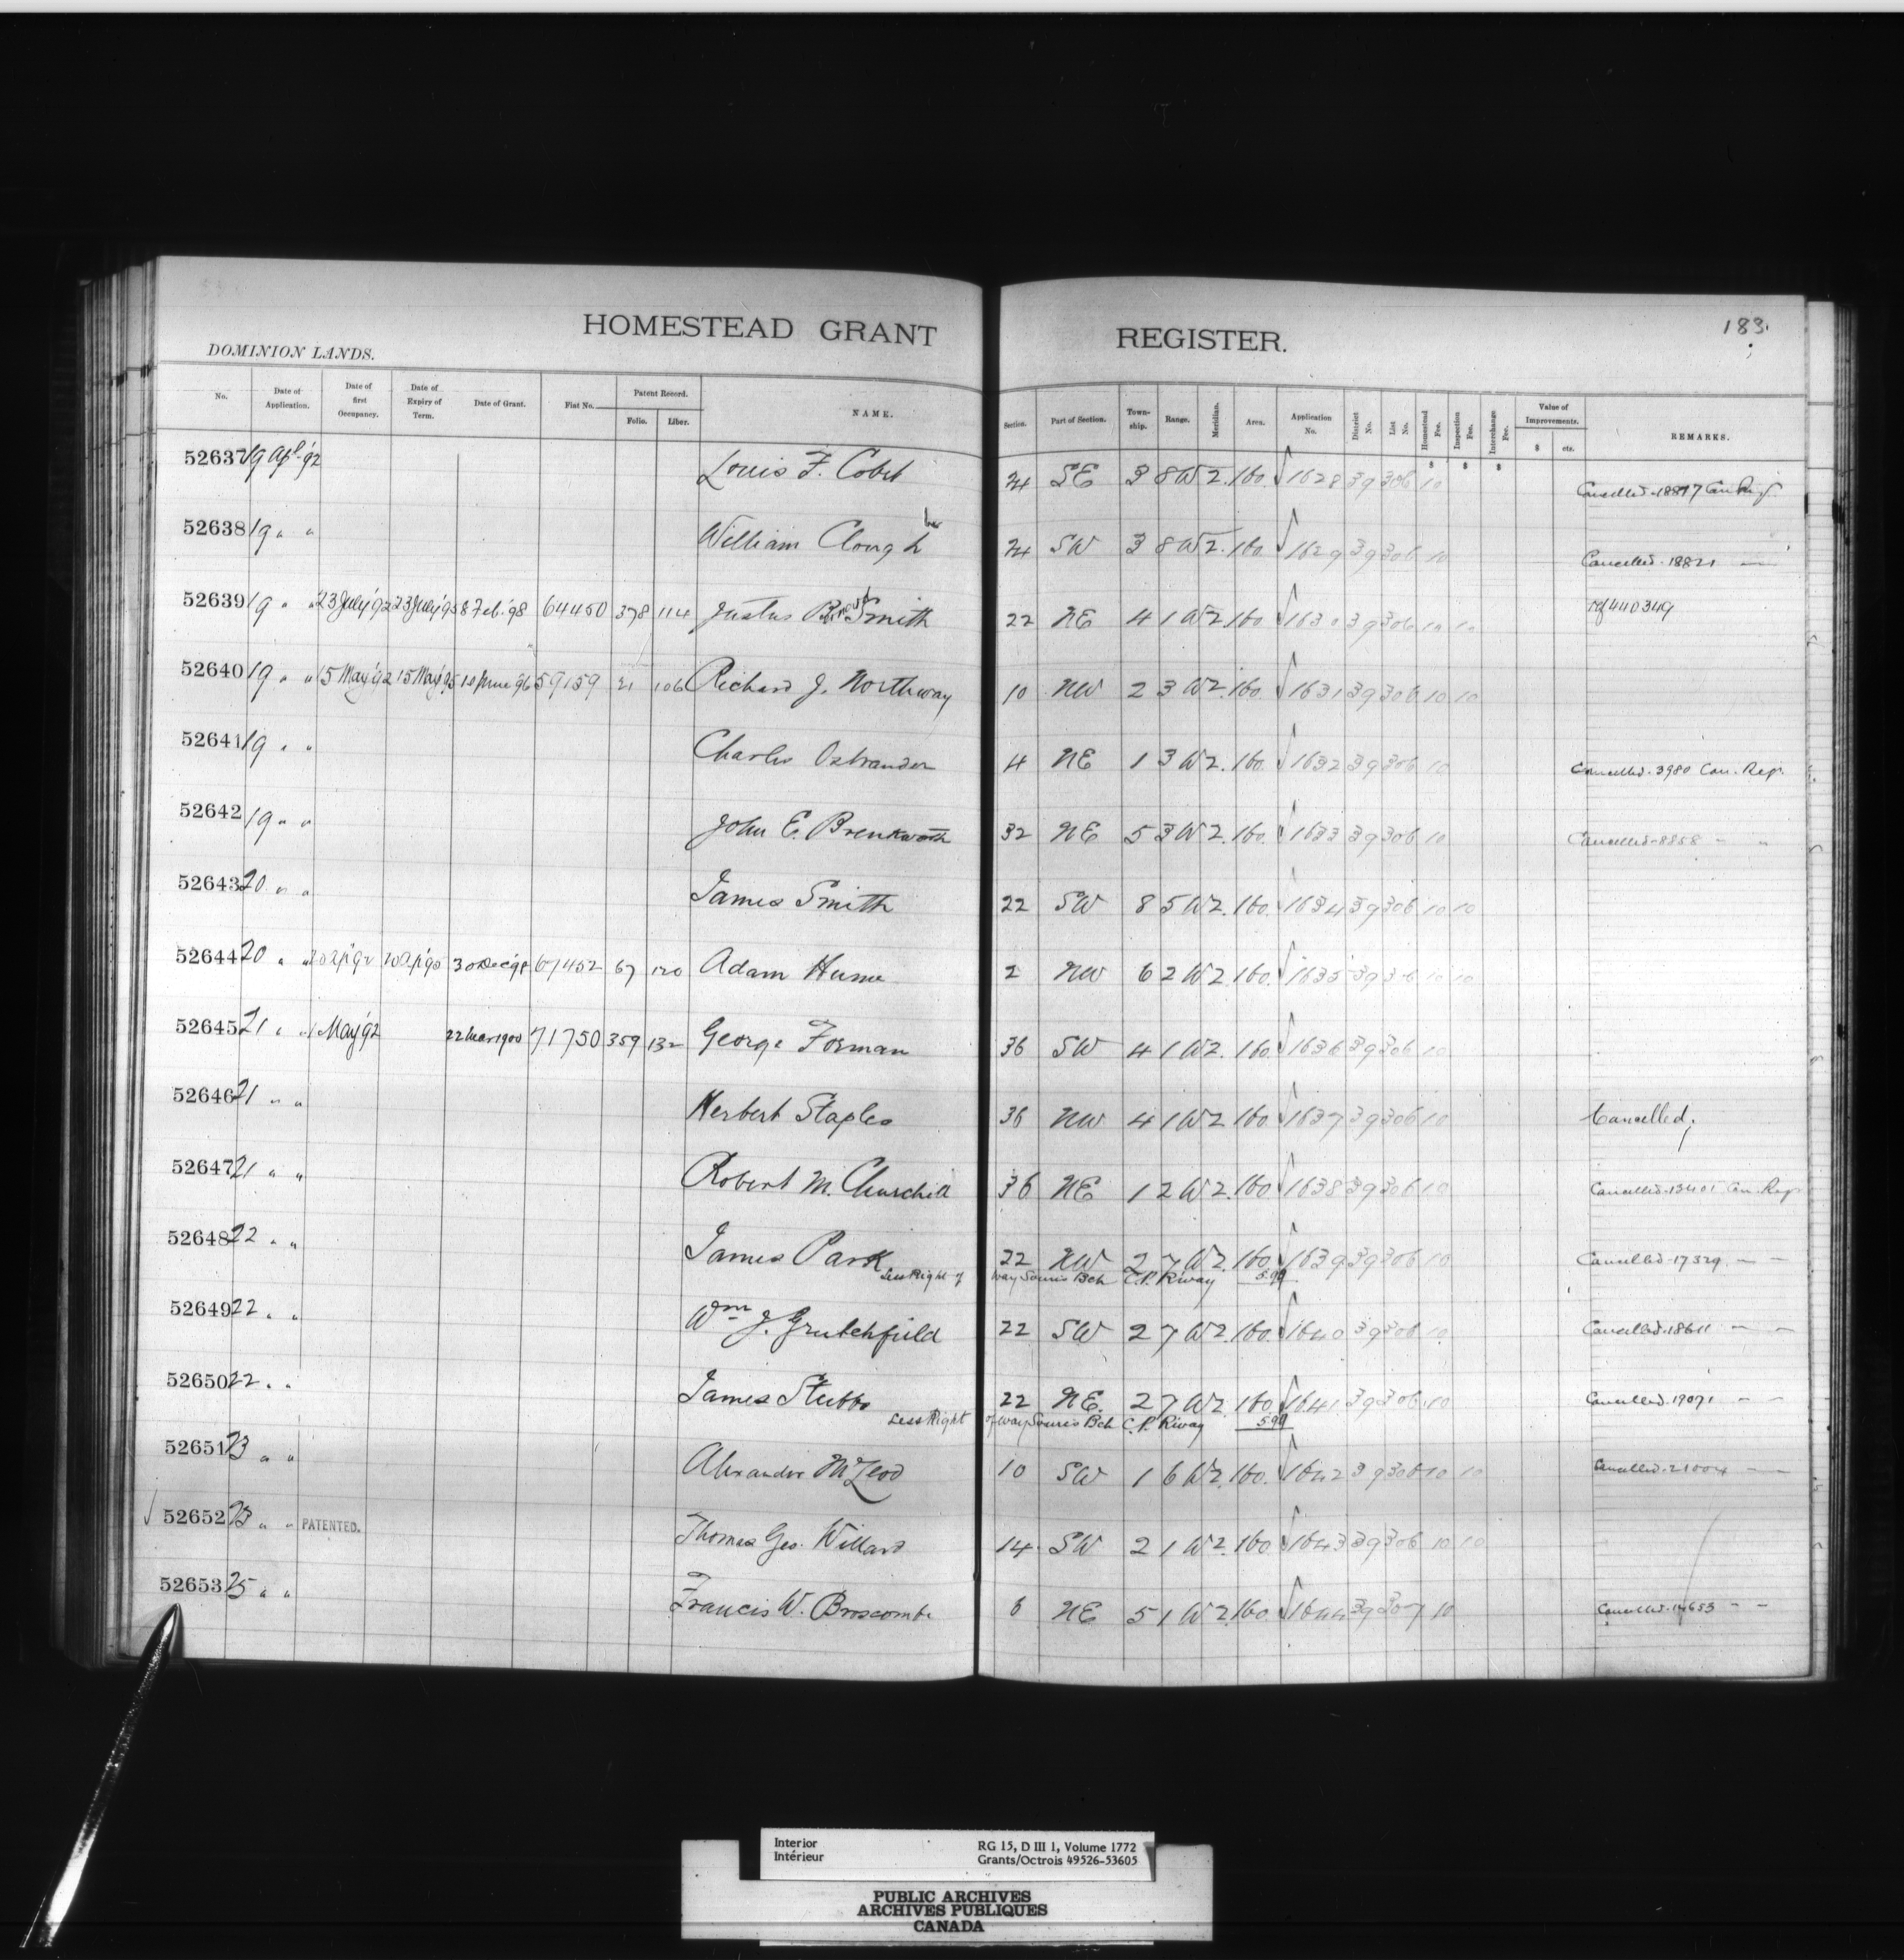 183.
HOMESTEAD GRANT REGISTER.
DOMINION LANDS.
No. Date of Application. Date of first Occupancy. Date of Expiry of Term. Date of Grant. Fiat No. Patent Record. Folio. Liber. NAME. Section. Part of Section. Township. Range. Meridian. Area. Application No. District No. List No. Homestead Fee. Inspection Fee. Interchange Fee. Value of Improvements. $ cts. REMARKS.
$ $ $
52637 19 Apl. '92 Louis F. 24 SE 3 8 W 2. 160. √ 1628 39 306 10 Cancelled
52638 19 " " William Clough 24 SW 3 8 W 2. 160. √ 1629 39 306 10 Cancelled. 18821 —
52639 19 " " 23 July '92 23 July '95 8 Feb. '98 64450 378 114 Justus Smith 22 NE 4 1 W 2 160 √ 1630 39 306 10 10 Ref 440349
52640 19 " " 15 May '92 15 May '95 10 June '96 59159 21 106 Richard J. Northway 10 NW 2 3 W 2. 160. √ 1631 39 306 10 10
52641 19 " " Charles Ostrander 4 NE 1 3 W 2. 160. √ 1632 39 306 10 Cancelled. 3980 Can. Reg.
52642 19 " " John E. Brenkworth 32 NE 5 3 W 2. 160. √ 1633 39 306 10 Cancelled. 8858 " "
52643 20 " " James Smith 22 SW 8 5 W 2. 160. √ 1634 39 306 10 10
52644 20 " " 30 Dec '98 67452 67 120 Adam Hume 2 NW 6 2 W 2. 160. √ 1635 39 306 10 10
52645 21 " " 1 May '92 22 Mar 1900 71750 359 132 George Forman 36 SW 4 1 W 2. 160. √ 1636 39 306 10
52646 21 " " Herbert Staples 36 NW 4 1 W 2 160. √ 1637 39 306 10 Cancelled,
52647 21 " " Robert M. Churchill 36 NE 1 2 W 2. 160 √ 1638 39 306 10 Cancelled. 13401 Can. Reg.
52648 22 " " James Park 22 NW 2 7 W 2. 160. √ 1639 39 306 10 Cancelled. 17329. — —
Less Right of Way Souris Bch C.P. R'way 5.99
52649 22 " " Wm J. Grutchfield 22 SW 2 7 W 2. 160. √ 1640 39 306 10 Cancelled. 18611 — —
52650 22 " " James Stubbs 22 NE. 2 7 W 2. 160. √ 1641 39 306 10 Cancelled. 19071 — —
Less Right of Way Souris Bch C.P. R'way 5.99
52651 23 " " Alexander McLeod 10 SW 1 6 W 2. 160. √ 1642 39 306 10 10 Cancelled. 21004 — —
√ 52652 23 " " PATENTED. Thomas Geo. Willard 14 SW 2 1 W 2. 160. √ 1643 39 306 10 10
52653 25 " " Francis W. Broscombe 6 NE 5 1 W 2. 160. √ 1644 39 307 10 Cancelled. 14653 — —
Interior RG 15, D III 1, Volume 1772
Intérieur Grants/Octrois 49526-53605
PUBLIC ARCHIVES
ARCHIVES PUBLIQUES
CANADA